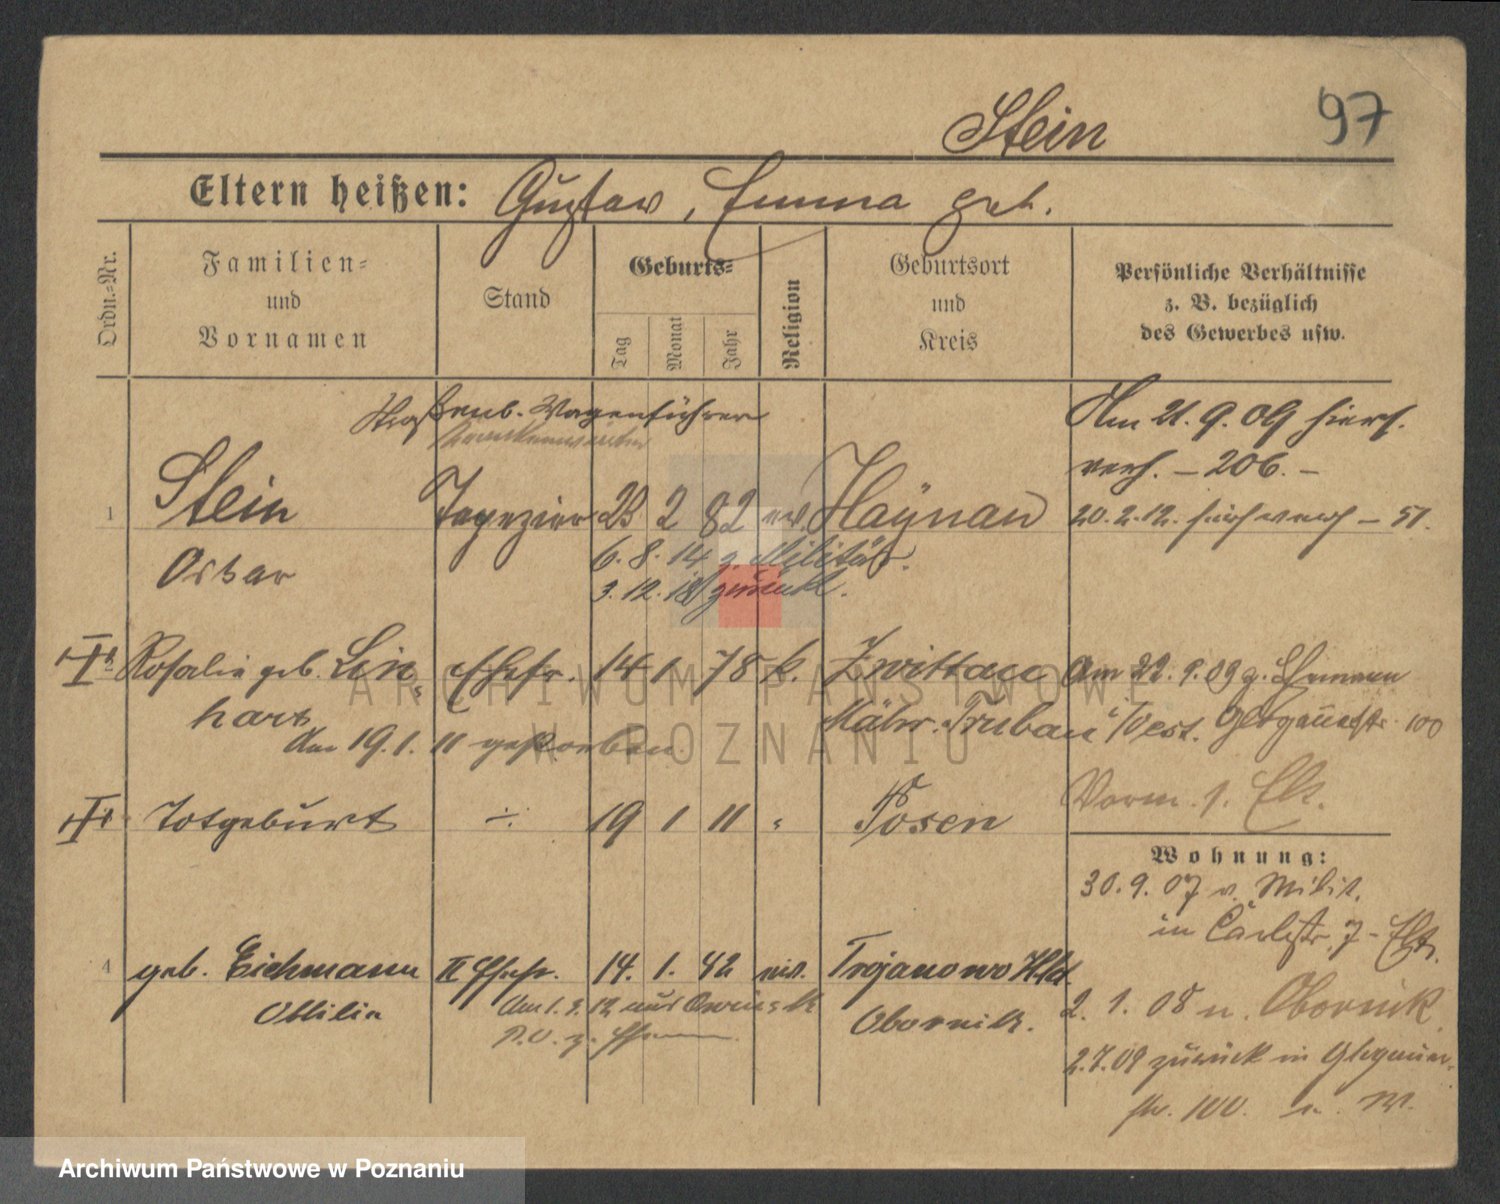 Stein 97
Eltern heißen: Gustav, Emma geb.
Ordn.-Nr.
Familien-
und
Vornamen
Stand
Geburts-
Tag
Monat
Jahr
Religion
Geburtsort
und
Kreis
Persönliche Verhältnisse
z. B. bezüglich
des Gewerbes usw.
Straßenb. Wagenführer
Am 21. 9. 09 hiers.
verh. – 206. –
1 Stein Tapezier 23 2 82 ev. Haynau
20. 2. 12. hier verh – 51.
Oskar
6. 8. 14 z. Militär.
3. 12. 18 zurück.
Rosalie geb. Lin- Ehefr. 14 1 78 k. Zwittau
hart
Mähr. Trubau Öest.
Am 22. 9. 09 z. Ehemann
100
Am 19. 1. 11 gestorben.
Vorm. 1. Elt.
Totgeburt ÷ 19 1 11 Posen
Wohnung:
30. 9. 07 v. Milit.
in 7 - Elt.
4 geb. Eichmann II Ehefr. 14. 1. 42 ev. Trojanowo Hld.
Ottilie
Obornik.
Am 1. 3. 12 aus
2. 1. 08 n. Obornik.
2.7.09 zurück in
str. 100.
Archiwum Państwowe
w Poznaniu
Archiwum Państwowe w Poznaniu